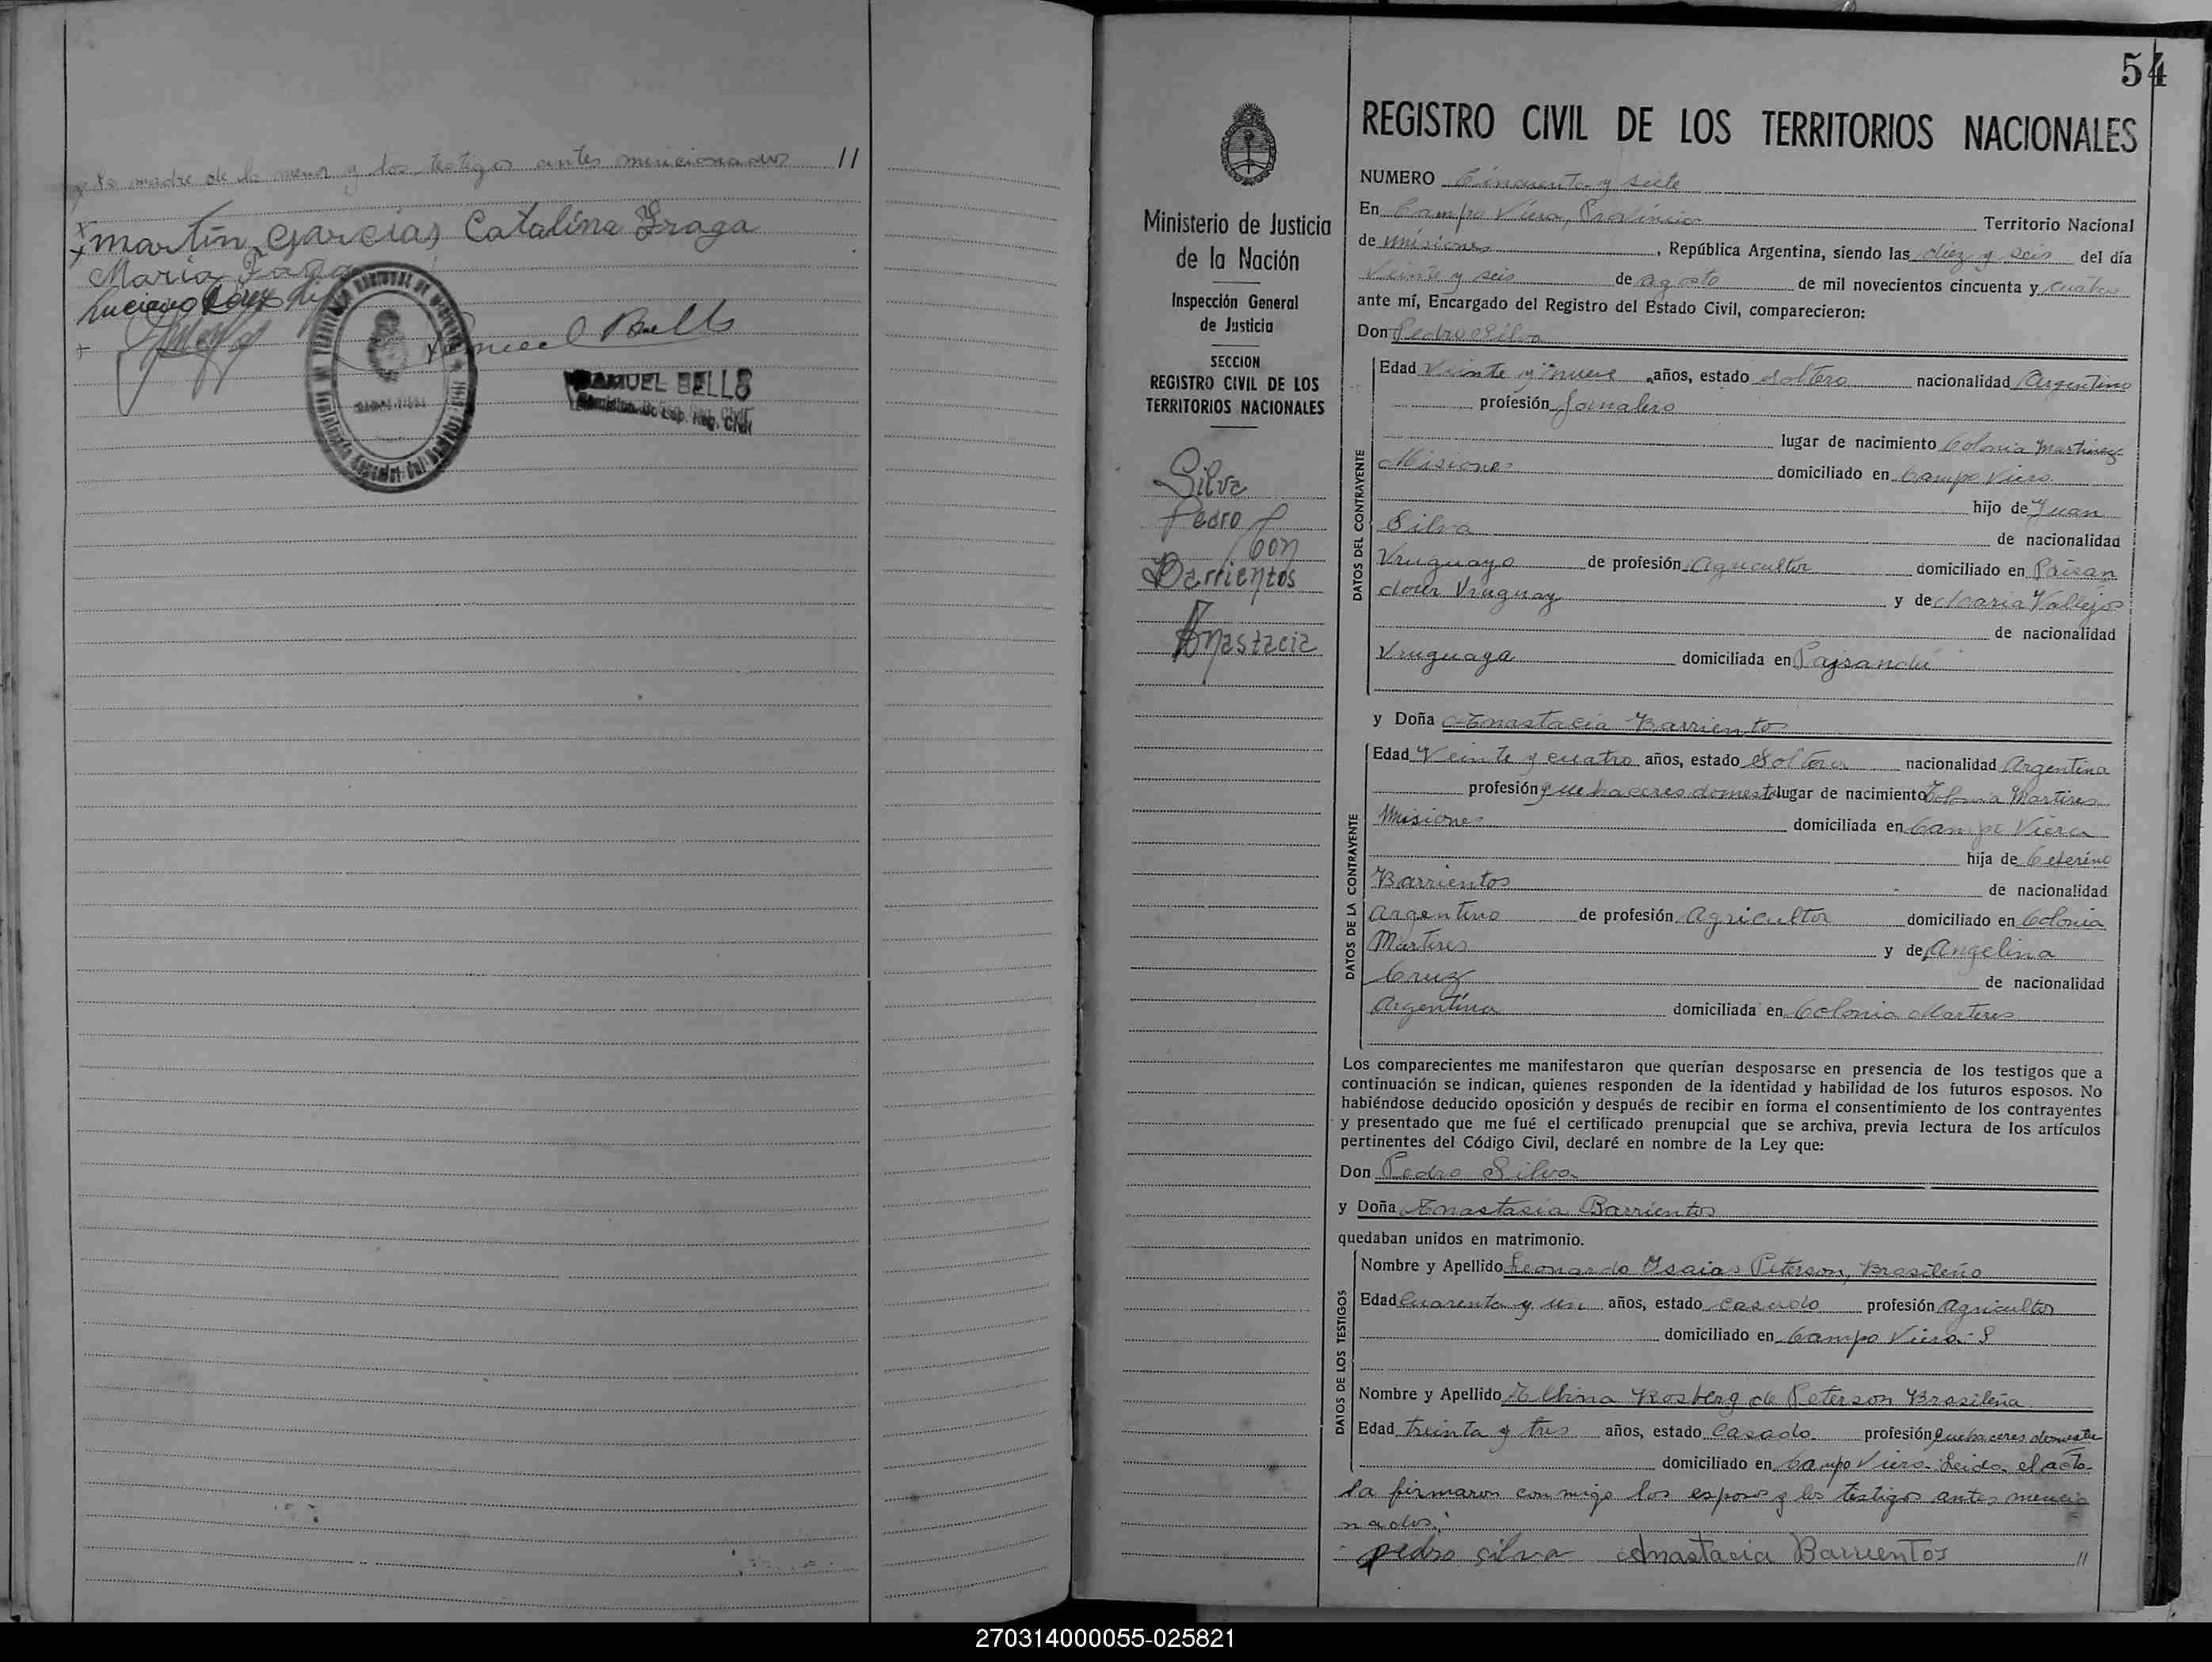 y la madre de la menor y los testigos antes mencionados //
Martín Garcias Catalina Fraga
Maria Fraga
Luciano
Samuel Bells
SAMUEL BELLS
Reg. Civil
54
REGISTRO CIVIL DE LOS TERRITORIOS NACIONALES
Ministerio de Justicia
de la Nación
Inspección General
de Justicia
SECCION
REGISTRO CIVIL DE LOS
TERRITORIOS NACIONALES
Silva
Pedro
con
Barrientos
Anastacia
NUMERO Cincuenta y siete
En Campo Viera, Provincia Territorio Nacional
de Misiones, República Argentina, siendo las diez y seis del día
Veinte y seis de Agosto de mil novecientos cincuenta y cuatro
ante mí, Encargado del Registro del Estado Civil, comparecieron:
Don Pedro Silva
DATOS DEL CONTRAYENTE
Edad Veinte y nueve años, estado soltero nacionalidad Argentino
profesión Jornalero
lugar de nacimiento Colonia Martires
Misiones domiciliado en Campo Viera
hijo de Juan
Silva de nacionalidad
Uruguayo de profesión Agricultor domiciliado en Paisan
dour Uruguay y de Maria Vallejos
de nacionalidad
Uruguaya domiciliada en Paysandú
y Doña Anastacia Barrientos
DATOS DE LA CONTRAYENTE
Edad Veinte y cuatro años, estado Soltera nacionalidad Argentina
profesión quehaceres domest lugar de nacimiento Colonia Martires
Misiones domiciliada en Campo Viera
hija de Ceferino
Barrientos de nacionalidad
Argentino de profesión Agricultor domiciliado en Colonia
Martires y de Angelina
Cruz de nacionalidad
Argentina domiciliada en Colonia Martires
Los comparecientes me manifestaron que querían desposarse en presencia de los testigos que a
continuación se indican, quienes responden de la identidad y habilidad de los futuros esposos. No
habiéndose deducido oposición y después de recibir en forma el consentimiento de los contrayentes
y presentado que me fué el certificado prenupcial que se archiva, previa lectura de los artículos
pertinentes del Código Civil, declaré en nombre de la Ley que:
Don Pedro Silva
y Doña Anastasia Barrientos
quedaban unidos en matrimonio.
DATOS DE LOS TESTIGOS
Nombre y Apellido Leonardo Isaias Peterson, Brasileño
Edad Cuarenta y un años, estado casado profesión Agricultor
domiciliado en Campo Viera
Nombre y Apellido Albina Rosberg de Peterson Brasileña
Edad treinta y tres años, estado Casado profesión quehaceres domestic
domiciliado en Campo Viera. Leida el acto
la firmaron conmigo los esposos y los testigos antes mencio
nados.
pedro silva Anastacia Barrientos //
270314000055-025821